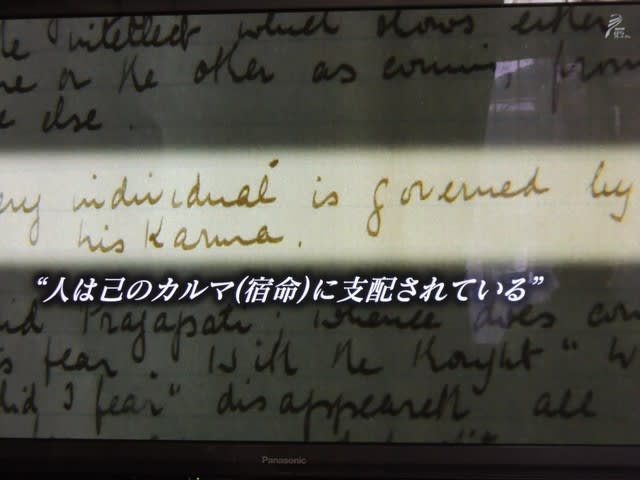 he intellect which shows either
ne or the other as coming from
e else.
ery individual is governed by
his Karma.
“人は己のカルマ(宿命)に支配されている”
id Prajapati. Whence does
s fear. With the thought "W
did I fear" disappeareth all
Panasonic